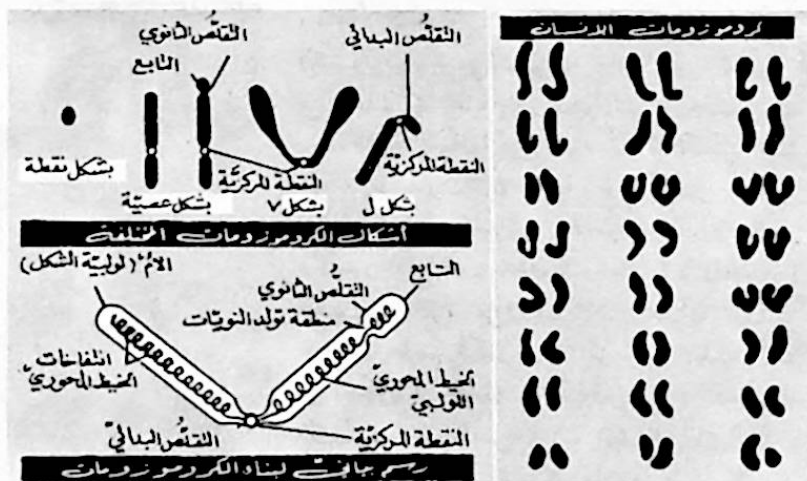 كروموزومات الانسان
التقلّص الثانوي
التابع
التقلّص البدائي
النقطة المركزيّة
النقطة المركزيّة
بشكل نقطة
بشكل عصيّة
بشكل ٧
بشكل ل
أشكال الكروموزومات المختلفة
الأم (لولبية الشكل)
التابع
التقلّص الثانوي
منطقة تولد النويّات
انتفاخات
الخيط المحوريّ
الخيط المحوريّ
اللولبيّ
التقلّص البدائيّ
النقطة المركزيّة
رسم بيانيّ لبناء الكروموزومات